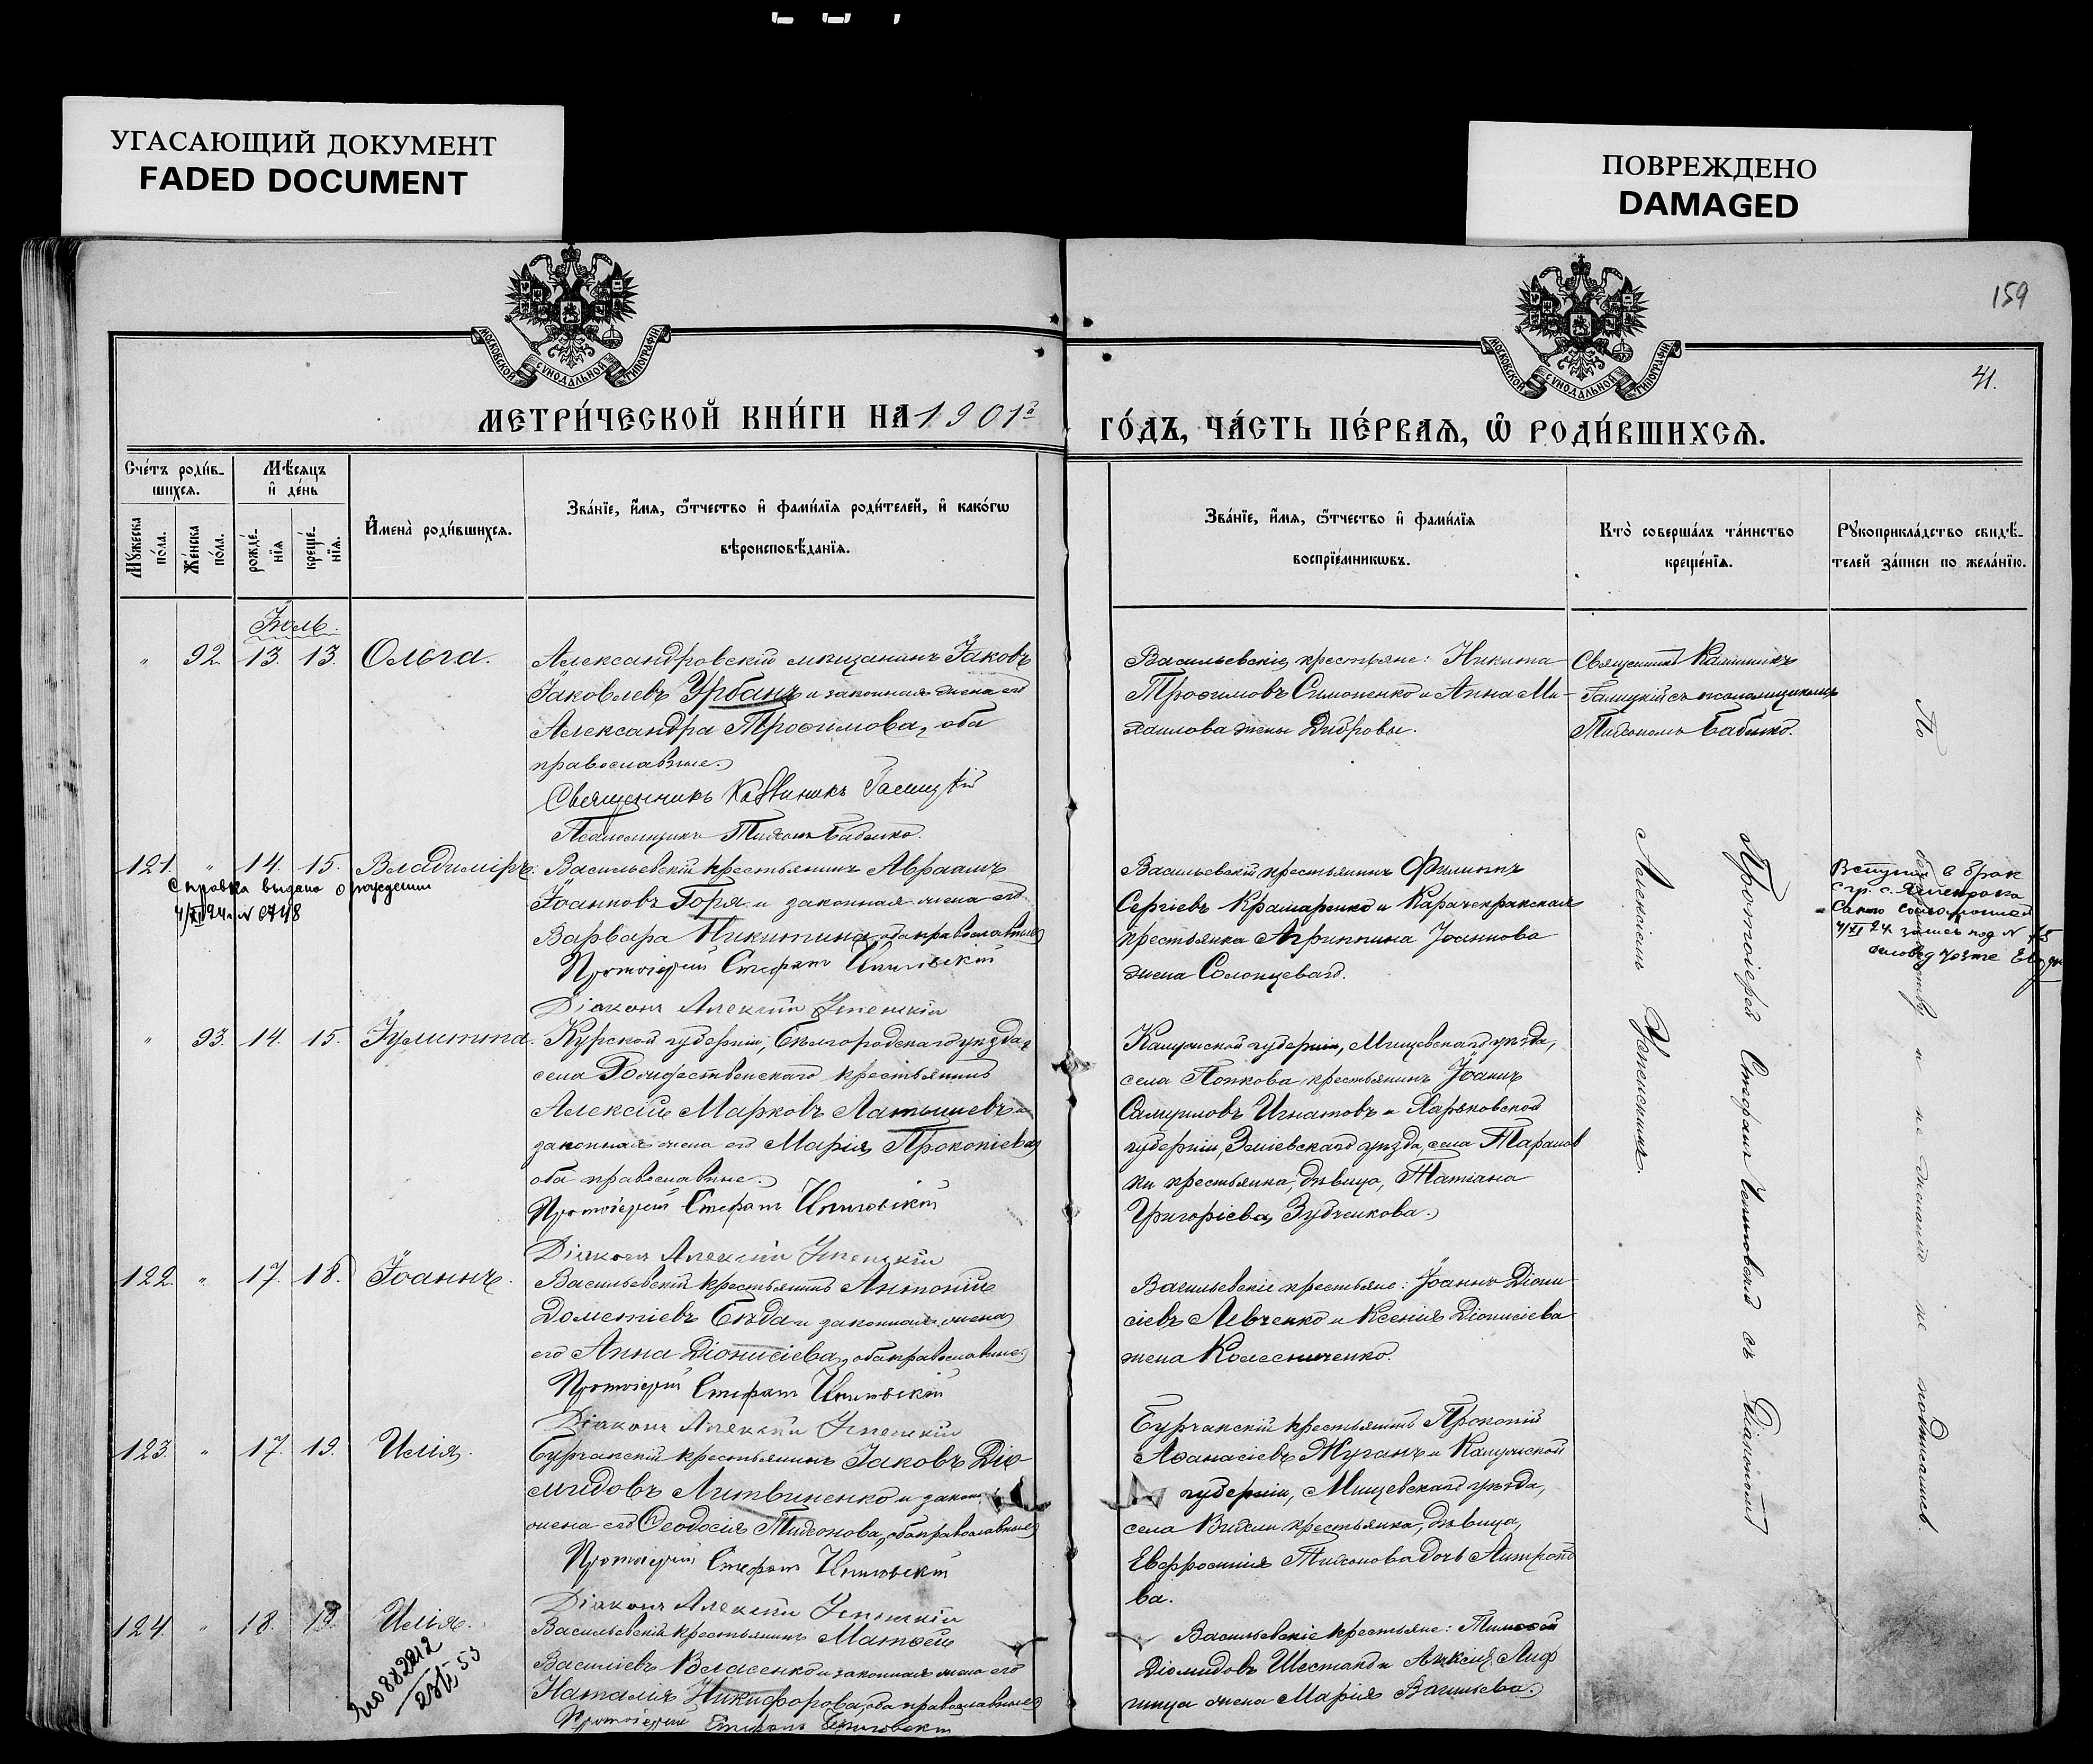 УГАСАЮЩИЙ ДОКУМЕНТ
FADED DOCUMENT
ПОВРЕЖДЕНО
DAMAGED
159
41.
МОСКОВСКОЙ СѴНОДАЛЬНОЙ ТИПОГРАФІИ
МОСКОВСКОЙ СѴНОДАЛЬНОЙ ТИПОГРАФІИ
МЕТРИ́ЧЕСКОЙ КНИ́ГИ НА 1901й
ГО́ДЪ, ЧА́СТЬ ПЕ́РВАЯ, Ѡ РОДИ́ВШИХСЯ.
Сче́тъ роди́в-
шихся.
Мѣ́сяцъ
и́ де́нь
Мꙋ́жеска по́ла.
Же́нска по́ла.
рожде́-
нїя
креще́-
нїя.
И҆мена̀ роди́вшихся.
Зва́нїе, и҆́мя, ѻ҆́тчество и҆ фами́лїя роди́телей, и҆ како́гѡ
вѣроисповѣ́данїя.
Зва́нїе, и҆́мя, ѻ҆́тчество и҆ фами́лїя
воспрїе́мникѡвъ.
Кто̀ соверша́лъ та́инство
креще́нїя.
Рꙋкоприкла́дство свидѣ́-
телей за́писи по жела́нїю.
Іюль.
" 92. 13. 13. Ольга.
Александровскій мѣщанинъ Іаковъ
Іаковлевъ Урбанъ и законная жена его
Александра Трофимова, оба
православные.
Священникъ Каллиникъ Галицкій
Псаломщикъ Тихонъ Бабенко.
Васильевскіе крестьяне: Никита
Трофимовъ Симоненко и Анна Ми-
хаилова жены Дибровы.
Священникъ Каллиникъ
Галицкій съ псаломщикомъ
Тихономъ Бабенко.
121. " 14. 15. Владиміръ.
Справка выдана о рождении
4/XI 24 г. № 6748
Васильевскій крестьянинъ Авраамъ
Іоанновъ Горя и законная жена его
Варвара Никитина, оба православные
Протоіерей Стефанъ
Діаконъ Алексій Успенскій
Васильевскій крестьянинъ Филиппъ
Сергіевъ Крамаренко и Карачекракская
крестьянка Агриппина Іоаннова
жена Солонцеваго.
Вступил в брак
с гр. с.
4/XI 24 запись под № 75
" 93. 14. 15. Іулитта.
Курской губерніи, Бѣлгородскаго уѣзда,
села Рождественскаго крестьянинъ
Алексій Марковъ Латышевъ и
законная жена его Марія Прокопіева,
оба православные.
Протоіерей Стефанъ
Діаконъ Алексій Успенскій
Калужской губерніи, Мещевскаго уѣзда,
села Попкова крестьянинъ Іоаннъ
Самуиловъ Игнатовъ и Харьковской
губерніи, Зміевскаго уѣзда, села Таранов
ки крестьянка, дѣвица, Татіана
Григоріева Зубченкова.
122. " 17. 18. Іоаннъ.
Васильевскій крестьянинъ Антоній
Дометіевъ Бѣда и законная жена
его Анна Діонисіева, оба православные
Протоіерей Стефанъ
Діаконъ Алексій Успенскій
Васильевскіе крестьяне: Іоаннъ Діони
сіевъ Левченко и Ксенія Діонисіева
жена Колесниченко.
123. " 17. 19. Илія.
Бурчакскій крестьянинъ Іаковъ Діо
мидовъ Литвиненко и закон.
жена его Ѳеодосія Тихонова, оба православные
Протоіерей Стефанъ
Діаконъ Алексій Успенскій
Бурчакскій крестьянинъ Прокопій
Аѳанасіевъ Жуганъ и Калужской
губерніи, Мещевскаго уѣзда,
села крестьянка, дѣвица,
Евфросинія Тихонова дочь
ва.
124. " 18. 19. Илія.
Васильевскій крестьянинъ Матѳей
Василіевъ Власенко и законная жена его
Наталія Никифорова, оба православные
Протоіерей Стефанъ
Васильевскіе крестьяне: Тимоѳей
Діомидовъ Шестакъ и
жена Марія Василіева.
Протоіерей Стефанъ съ Діакономъ
Алексіемъ Успенскимъ.
По безграмотству и не желанію не подписались.